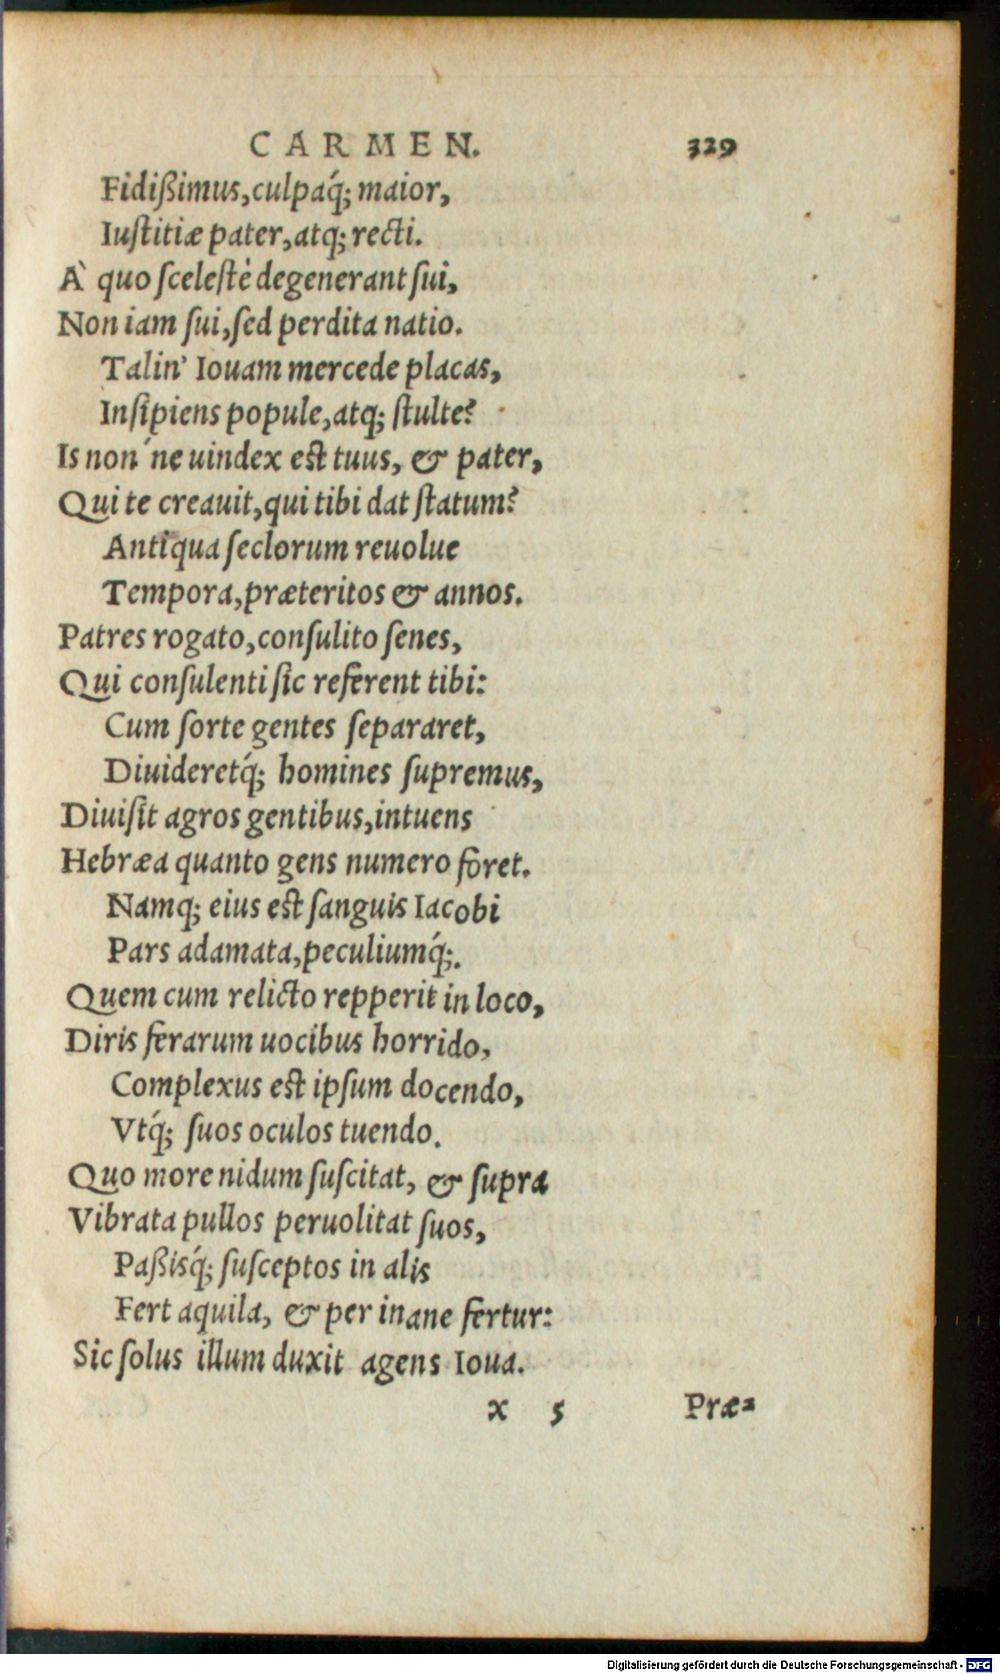 CARMEN. 329
Fidißimus, culpaq́; maior,
Iuſtitiæ pater, atq; recti.
À quo ſceleſtè degenerant ſui,
Non iam ſui, ſed perdita natio.
Talin' Iouam mercede placas,
Inſipiens popule, atq; ſtulte?
Is non´ne uindex est tuus, & pater,
Qui te creauit, qui tibi dat ſtatum?
Antiqua ſeclorum reuolue
Tempora, præteritos & annos.
Patres rogato, conſulito ſenes,
Qui conſulenti ſic referent tibi:
Cum ſorte gentes ſepararet,
Diuideretq́; homines ſupremus,
Diuiſit agros gentibus, intuens
Hebræa quanto gens numero foret.
Namq; eius est ſanguis Iacobi
Pars adamata, peculiumq́;.
Quem cum relicto repperit in loco,
Diris ferarum uocibus horrido,
Complexus est ipſum docendo,
Vtq́; ſuos oculos tuendo.
Quo more nidum ſuſcitat, & ſupra
Vibrata pullos peruolitat ſuos,
Paßisq́; ſuſceptos in alis
Fert aquila, & per inane fertur:
Sic ſolus illum duxit agens Ioua.
x 5 Præ-
Digitalisierung gefördert durch die Deutsche Forschungsgemeinschaft - DFG